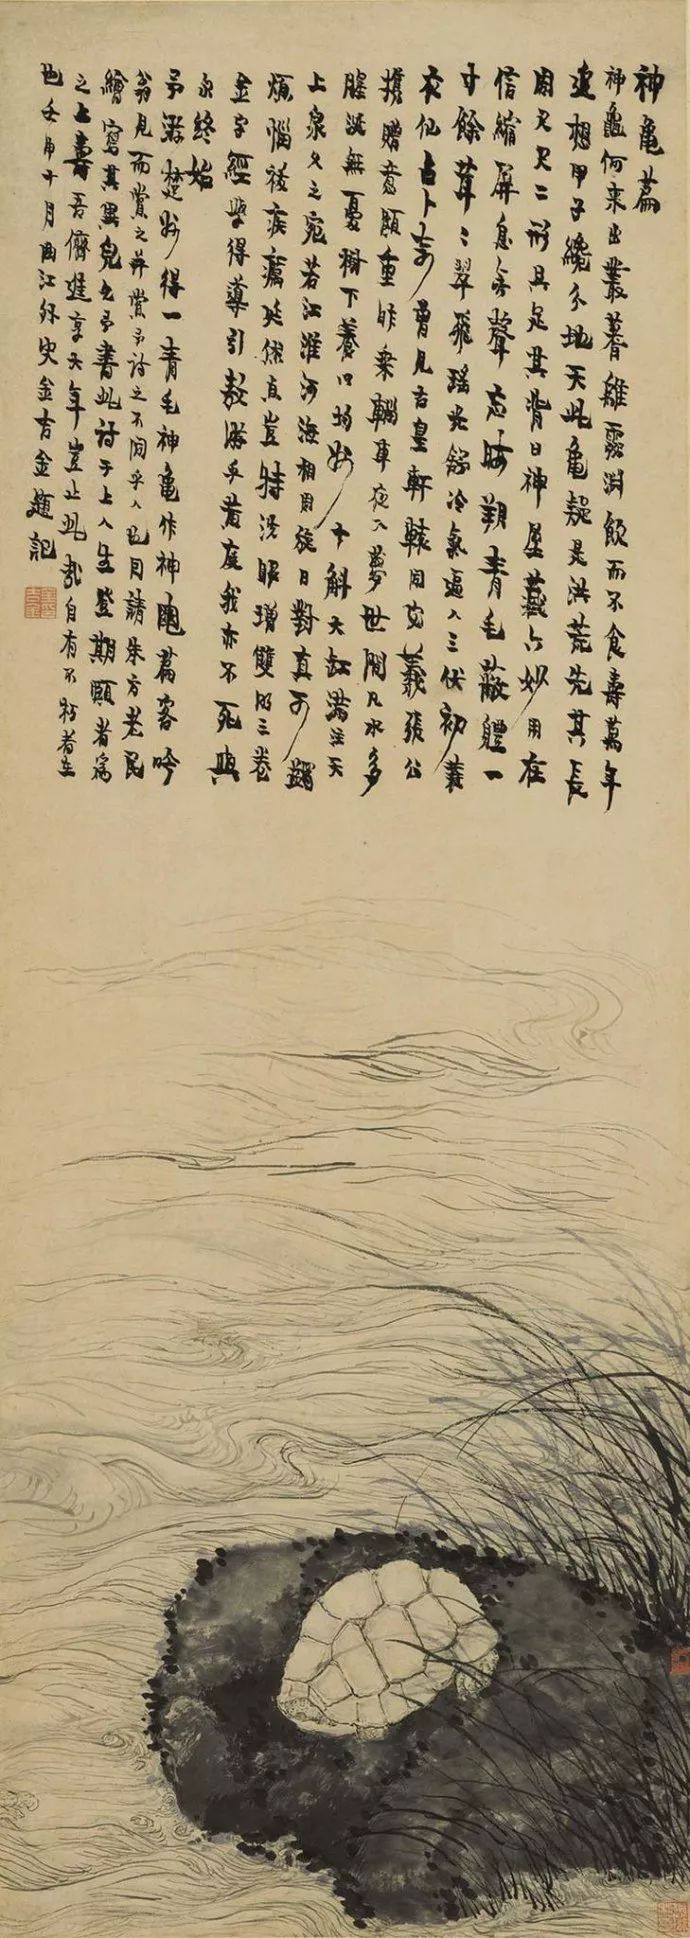 神龜篇
神龜何來出叢蓍離靈淵飲而不食壽萬年
遠想甲子纔分地天此龜疑是洪荒先其長
周尺尺二形具足其背曰神屋藏六妙用在
信縮屏息無聲忘晦朔青毛蔽體一
寸餘茸茸翠飛瑤光餘冷氣逼人三伏初蓑
衣仙占卜 曾見古皇軒轅同宓羲張公
携贈意頗重昨乘輜車夜入夢世間凡水多
腥涎無憂樹下養 十斛大缸滿注天
上泉久之宛若江淮河海相周旋日對真可蠲
煩惱祓疾癘延 豈特洗眼增雙明三卷
金字經學得導引 游乎黃庭我亦不死與
永終始
予游楚 得一青毛神龜作神龜篇客吟
翁見而賞之并賞予詩之不同乎人也因請朱方老民
繪寫其異兒也予書此詩于上人生登期頤者為
之上壽吾儕 享大年豈止此哉自有不朽者在
也壬申十月曲江外史金吉金題記